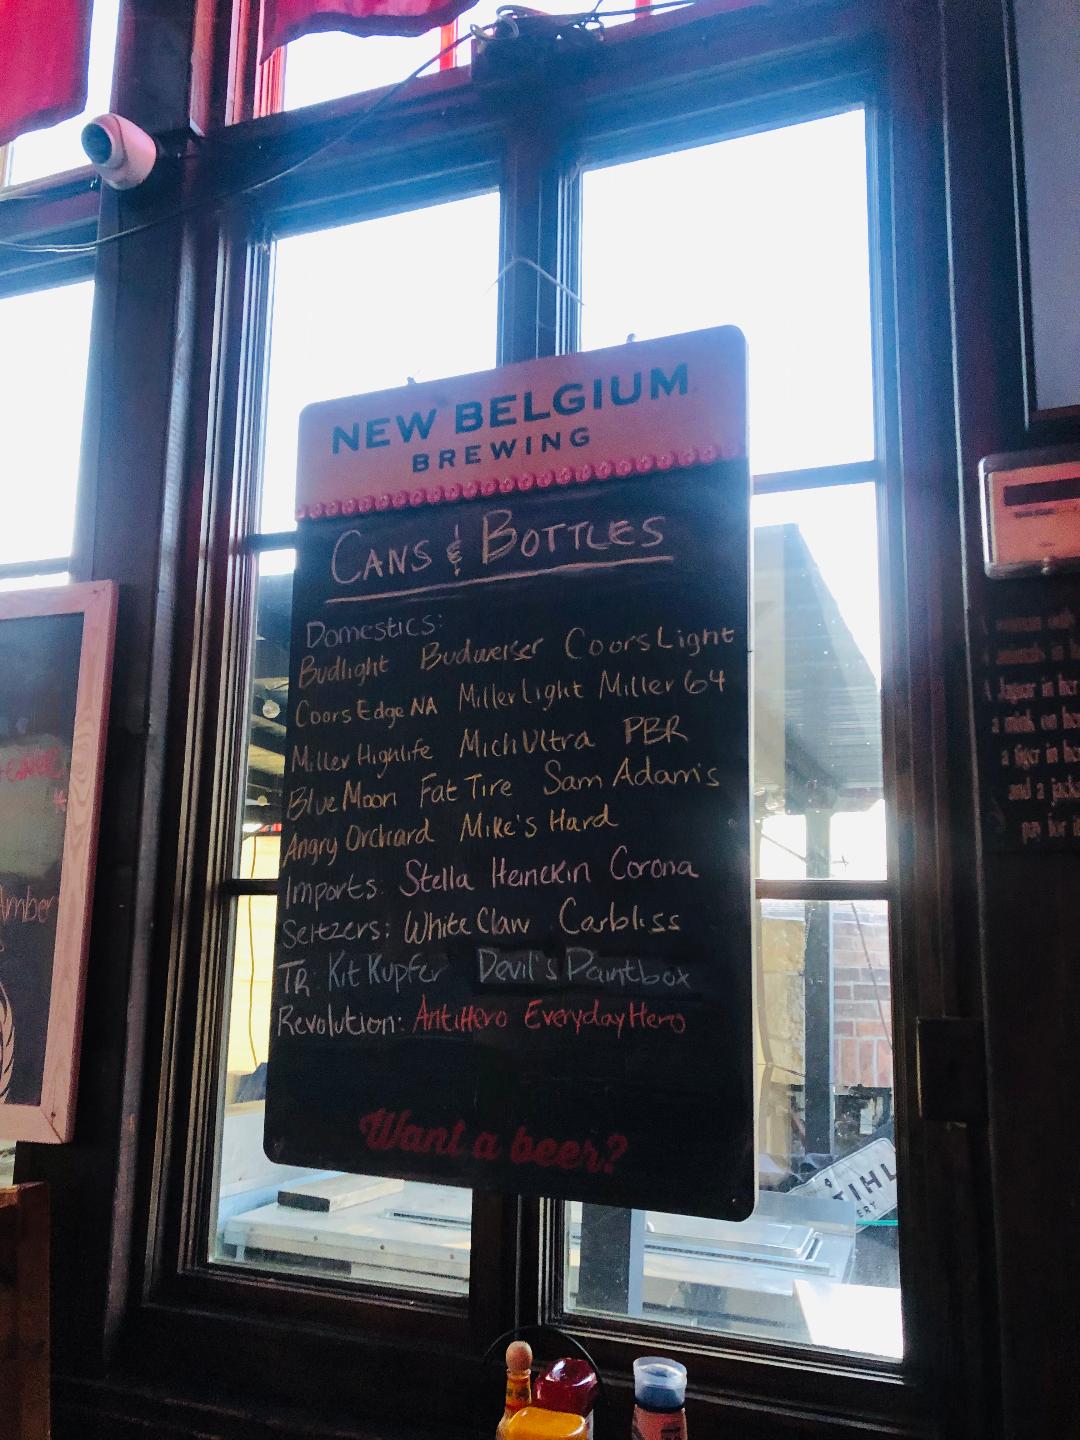 NEW BELGIUM
BREWING
CANS & BOTTLES
Domestics:
Budlight Budweiser Coors Light
Coors Edge NA Miller Light Miller 64
Miller Highlife Mich Ultra PBR
Blue Moon Fat Tire Sam Adam's
Angry Orchard Mike's Hard
Imports: Stella Heinekin Corona
Seltzers: White Claw Carbliss
TR: Kit Kupfer Devil's Paintbox
Revolution: AntiHero EverydayHero
Want a beer?
Amber
TIHL
ERY
a mink on
a tiger in
and a
pay for